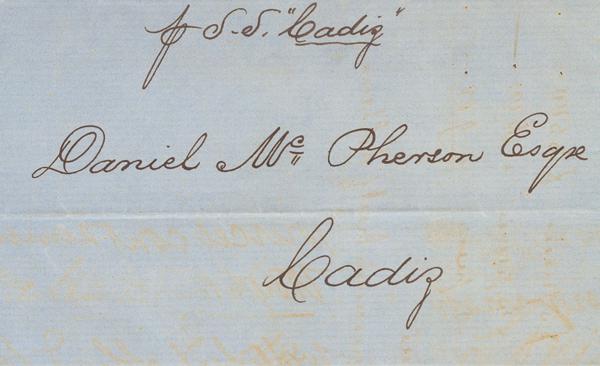 p S.S. "Cadiz"
Daniel Mc Pherson Esqre
Cadiz